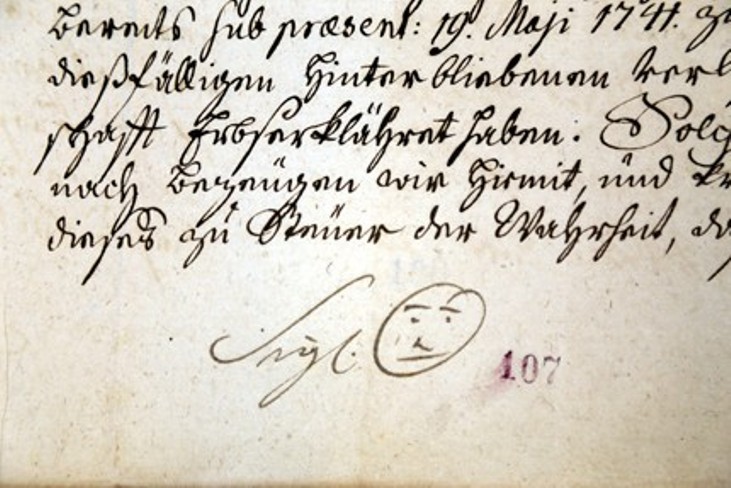 bereits sub præsent: 19. Maji 1741. z
dießfälligen Hinterbliebenen verl
schafft Erbserklähret haben: Solch
nach bezeügen wir hiemit, und kr
dieses zu Steüer der Wahrheit, da
Sigl.
107